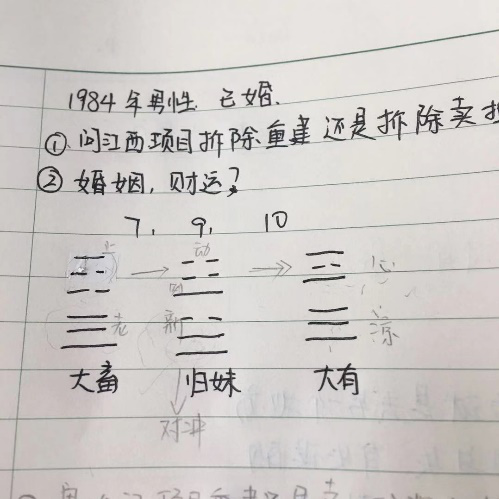 1984年男性 已婚.
① 问江西项目拆除重建还是拆除卖
② 婚姻, 财运?
7, 9, 10
动
老
新
凉
大畜 归妹 大有
对冲